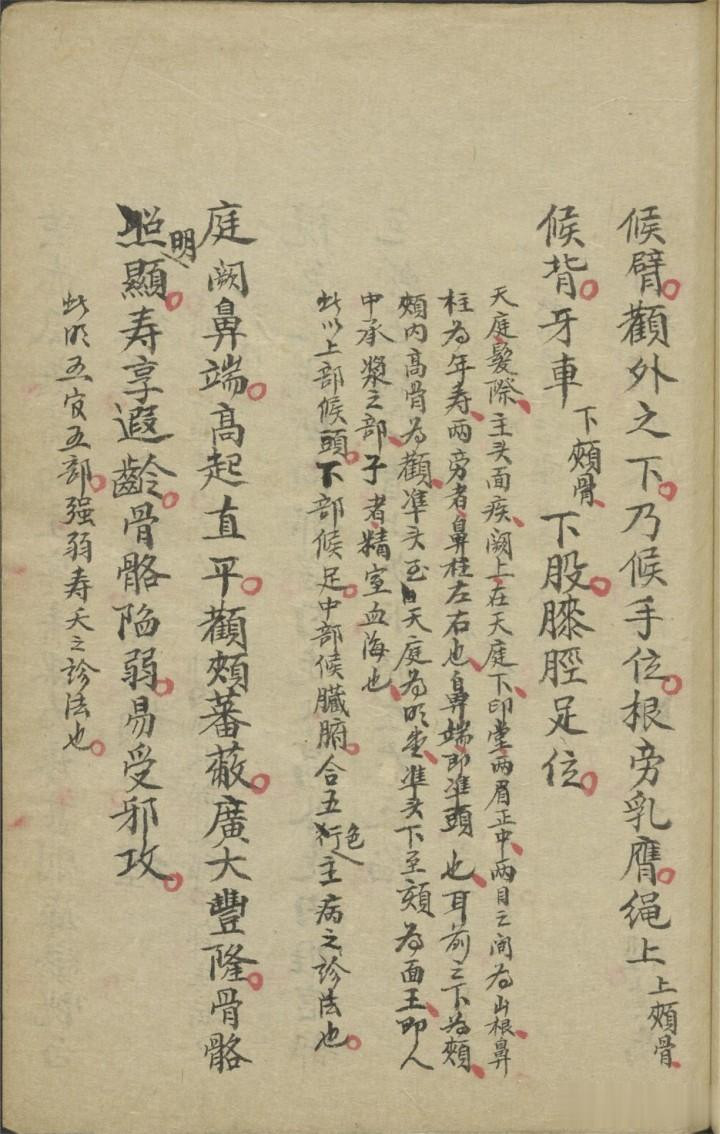 候臂。顴外之下。乃候手位。根旁乳膺。绳上上頰骨、
候背。牙車下頰骨、下股。膝脛足位。
天庭髮際、主头面疾、阙上在天庭下、印堂两眉正中、两目之间为山根、鼻
柱为年寿、两旁者、鼻柱左右也、鼻端即準頭也、耳前之下为頰、
頰内高骨为顴、準头至天庭为明堂、準头下至頦为面王、即人
中承漿之部、子者、精室血海也、
此以上部候頭。下部候足。中部候臓腑。合五色主病之診法也。
庭阙鼻端。高起直平。顴頰蕃蔽。廣大豐隆。骨骼
明顯。寿享遐齡。骨骼陷弱。易受邪攻。
此明五官五部。强弱寿夭之診法也。